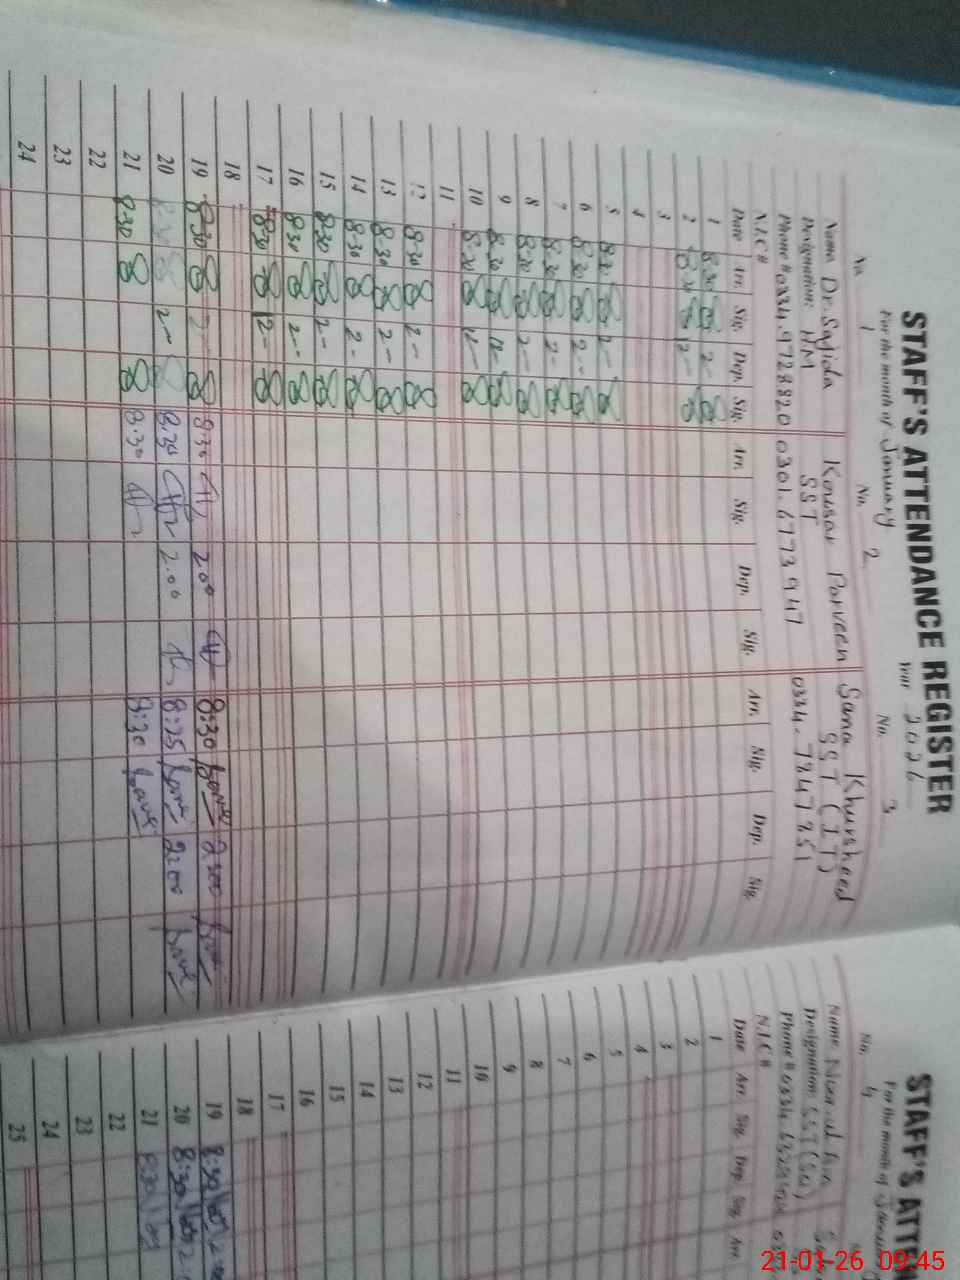 STAFF'S ATTENDANCE REGISTER
For the month of January Year 2026
No. 1 No. 2 No. 3
Name Dr. Sajida Kousar Parveen Sana Khursheed
Designation: HM SST SST (IT)
Phone # 0334.9728820 0301.6773947 0334-7847851
N.I.C #
Date Arr. Sig. Dep. Sig. Arr. Sig. Dep. Sig. Arr. Sig. Dep. Sig.
1 8:30 2-
2 8:30 12-
3
4
5 8:30 2-
6 8:30 2-
7 8:30 2-
8 8:30 2-
9 8:30 12-
10 8:30 12-
11
12 8:30 2-
13 8:30 2-
14 8:30 2-
15 8:30 2-
16 8:30 2-
17 8:30 12-
18
19 8:30 2- 8:30 2.00 8:30 2:00
20 8:30 2- 8:30 2.00 8:25 2:00
21 8:30 8:30 8:30
22
23
24
STAFF'S ATTEN
For the month of
No. 4
Name
Designation: SST
Phone #
N.I.C #
Date Arr. Sig. Dep. Sig. Arr.
1
2
3
4
5
6
7
8
9
10
11
12
13
14
15
16
17
18
19 8:30
20 8:30
21 8:30
22
23
24
25
21-01-26 09:45